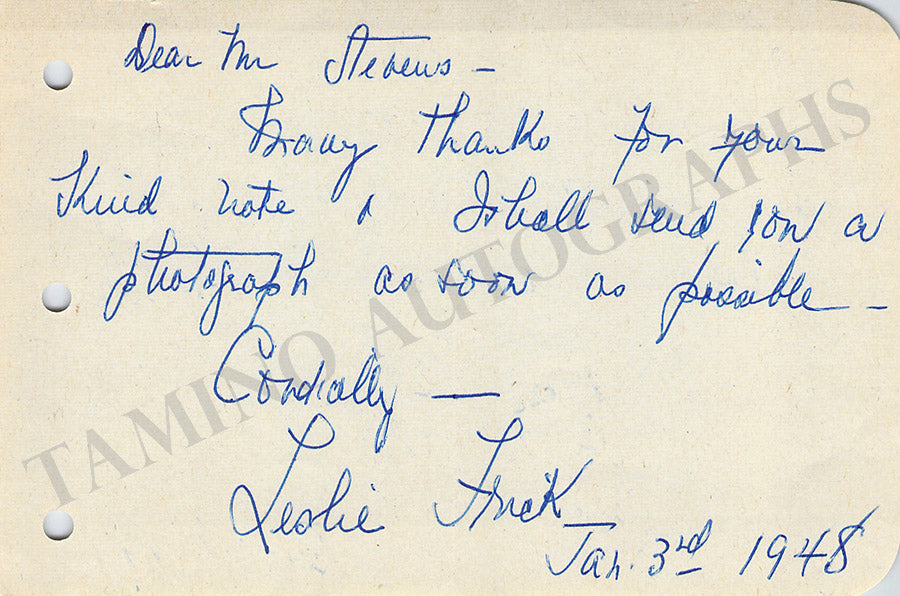 Dear Mr Stevens –
Many thanks for your
Kind note & I shall send you a
photograph as soon as possible –
Cordially —
Leslie Frick
Jan. 3rd 1948
TAMINO AUTOGRAPHS